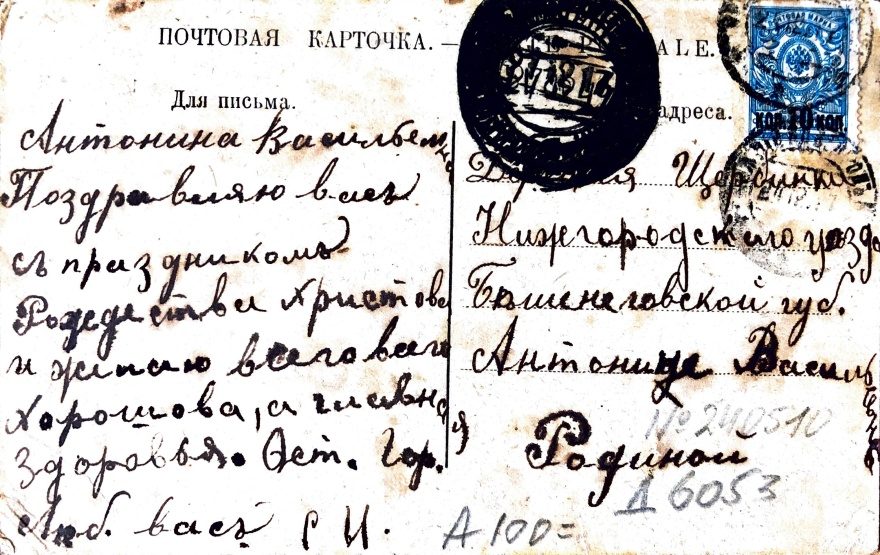 ПОЧТОВАЯ КАРТОЧКА. — ALE.
Для письма.
адреса.
Антонина Васильевна
Поздравляю васъ
съ праздникомъ
Рождества Христова
и желаю всего всего
Хорошова, а главное
Здоровья. Ост. Гор.
Люб. васъ Р И.
коп. 10 коп.
Щербинки
Нижгородского уезда
губ.
Антонине Василь
Родиной
№ 240510
Д 6053
А 100=